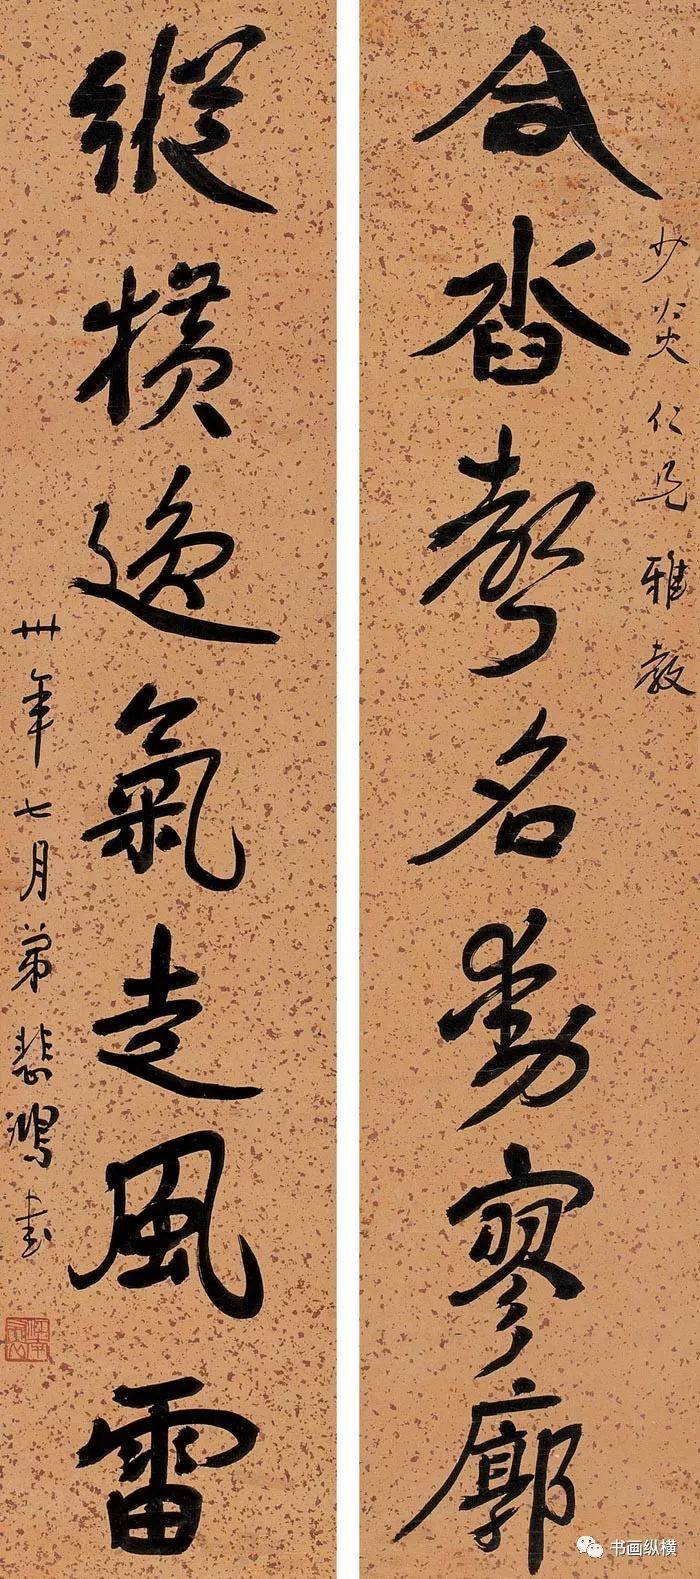 合沓聲名動寥廓
少炎仁兄雅教
縱橫逸氣走風雷
卅年七月弟悲鴻書
书画纵横